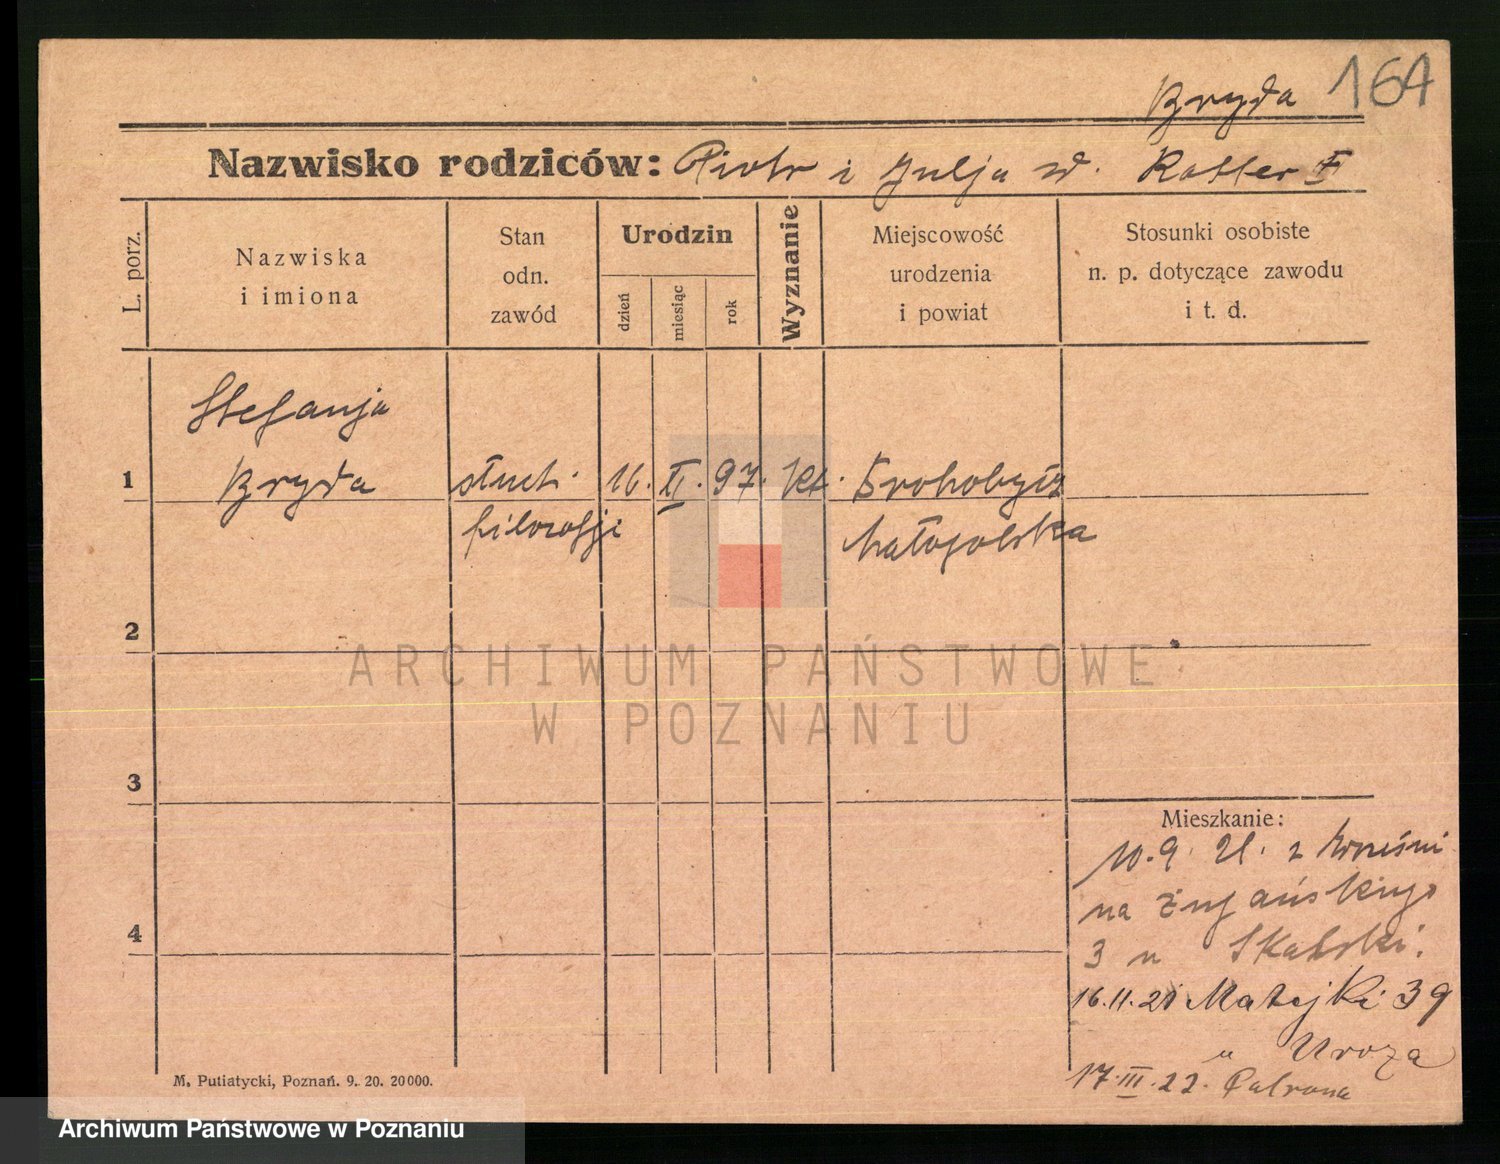 Bryda 164
Nazwisko rodziców: Piotr i Julja d. Kotler
L. porz.
Nazwiska
i imiona
Stan
odn.
zawód
Urodzin
dzień
miesiąc
rok
Wyznanie
Miejscowość
urodzenia
i powiat
Stosunki osobiste
n. p. dotyczące zawodu
i t. d.
Stefanja
1 Bryda słuch. 16. XI. 97. kt. Drohobycz
filozofji Małopolska
2
ARCHIWUM PAŃSTWOWE
W POZNANIU
3
4
Mieszkanie:
10.9.21. z Wrześni
na
3 u Skalski.
16.11.21 Matejki 39
u Uroza
17.III.22. Patrona
M. Putiatycki, Poznań. 9. 20. 20000.
Archiwum Państwowe w Poznaniu